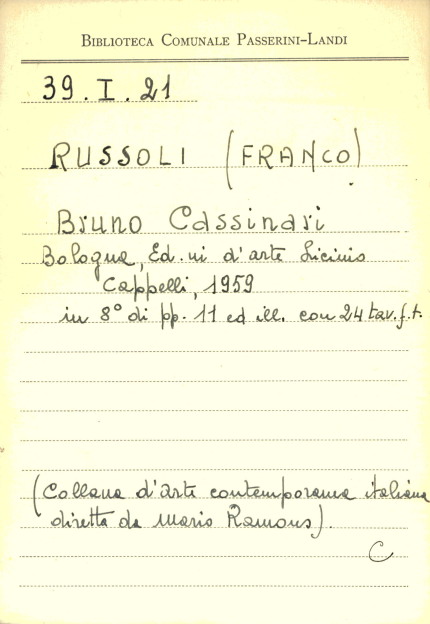 BIBLIOTECA COMUNALE PASSERINI-LANDI
39. I. 21
RUSSOLI (FRANCO)
Bruno Cassinari
Bologna, Ed.ni d'arte Licinio
Cappelli, 1959
in 8° di pp. 11 ed ill. con 24 tav. f.t.
(Collana d'arte contemporanea italiana
diretta da Mario Ramous).
C